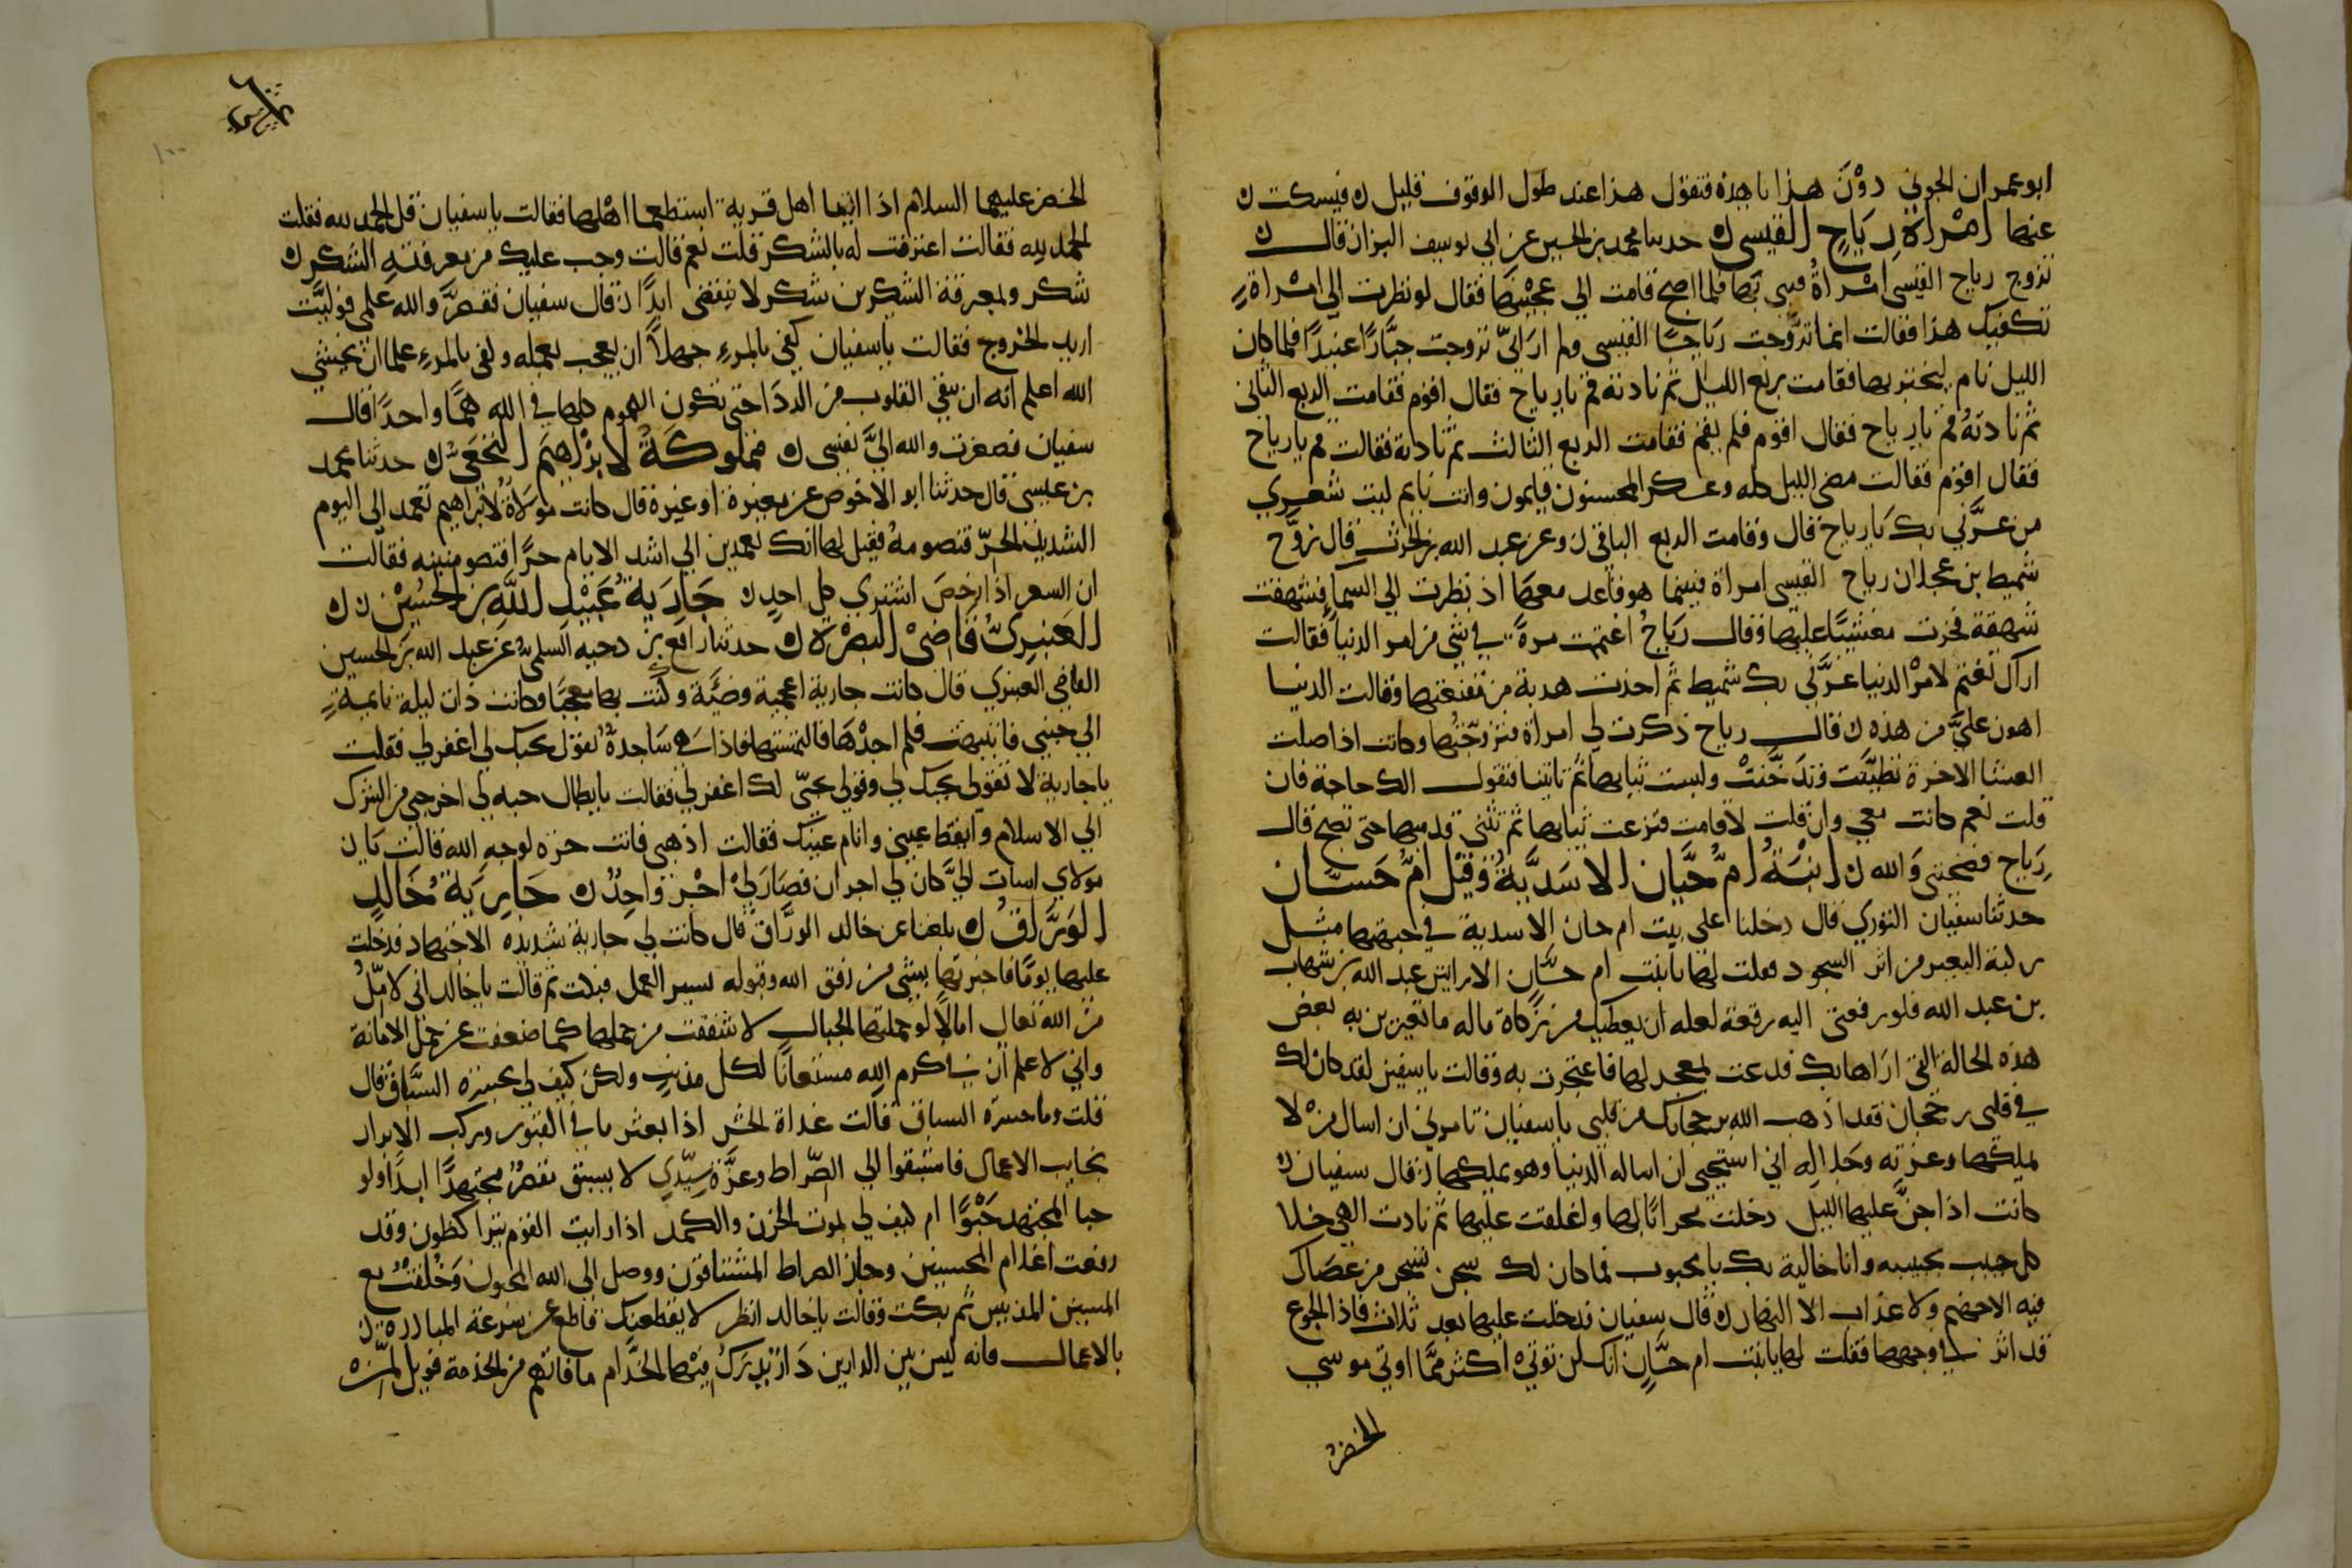 ابو عمران الجوني دون هذا يا هذه فتقول هذا عند طول الوقوف قليل ن فيسكت ن
عنها امراة رياح القيسي ن حدثنا محمد بن الحسين عن ابي يوسف البزاز قال ن
تزوج رياح القيسي امراة فبنى بها فلما اصبح قامت الى عجينها فقال لو نظرت الى امراة
تكفيك هذا فقالت انما تزوجت رياحا القيسي ولم اراني تزوجت جبارا عنيدا فلما كان
الليل نام ليختبرها فقامت ربع الليل ثم نادته قم يا رياح فقال اقوم فقامت الربع الثاني
ثم نادته قم يا رياح فقال اقوم فلم يقم فقامت الربع الثالث ثم نادته فقالت قم يا رياح
فقال اقوم فقالت مضى الليل كله وعسكر المحسنون قايمون وانت نايم ليت شعري
من غرني بك يا رياح قال وقامت الربع الباقي ن وعن عبد الله بن الحرث قال تزوج
شميط بن عجلان رياح القيسي امراة فبينما هو قاعد معها اذ نظرت الى السما فشهقت
شهقة فخرت مغشيا عليها وقال رياح اغتممت مرة في شي من امر الدنيا فقالت
اراك تغتم لامر الدنيا غرني بك شميط ثم اخذت هدبة من مقنعتها وقالت الدنيا
اهون علي من هذه ن قال رياح ذكرت لي امراة فتزوجتها وكانت اذا صلت
العشا الاخرة تطيبت وتدخنت ولبست ثيابها ثم تاتينا فتقول الك حاجة فان
قلت نعم كانت معي وان قلت لا قامت فنزعت ثيابها ثم تثني قدميها حتى تصبح قال
رياح فضحتني والله ن ابنة ام حيان الاسدية وقيل ام حسان
حدثنا سفيان الثوري قال دخلنا على بيت ام حسان الاسدية في جبهتها مثل
ركبة البعير من اثر السجود فقلت لها يا بنت ام حسان الا تاتين عبد الله بن شهاب
بن عبد الله فلو رفعتي اليه رقعة لعله ان يعطيك من زكاة ماله ما تغيرين به بعض
هذه الحالة التي اراها بك فدعت بمعجر لها فاعتجرت به وقالت يا سفين لقد كان لك
في قلبي رجحان فقد اذهب الله برجحانك من قلبي يا سفيان تامرني ان اسال من لا
يملكها وعزته وجلاله اني استحيي ان اساله الدنيا وهو يملكها ن قال سفيان ن
كانت اذا جن عليها الليل دخلت محرابا لها واغلقت عليها ثم نادت الهي خلا
كل حبيب بحبيبه وانا خالية بك يا محبوب فما كان لك سجن تسجن من عصاك
فيه الا جهنم ولا عذاب الا النار ن قال سفيان فدخلت عليها بعد ثلاث فاذا الجوع
قد اثر في وجهها فقلت لها يا بنت ام حسان انك لن توتي اكثر مما اوتي موسى
الخضر
الخضر عليهما السلام اذا اتيا اهل قرية استطعما اهلها فقالت يا سفيان قل الحمد لله فقلت
الحمد لله فقالت اعترفت له بالشكر قلت نعم قالت وجب عليك من معرفته الشكر ن
شكر ولمعرفة الشكرين شكر لا ينقضي ابدا ن قال سفيان فقصر والله علمي فوليت
اريد الخروج فقالت يا سفيان كفى بالمرء جهلا ان يعجب بعمله وكفى بالمرء علما ان يخشى
الله اعلم انه لن تنقى القلوب من الردا حتى تكون الهموم كلها في الله هما واحدا قال
سفيان فصغرت والله الي نفسي ن مملوكة لابرهيم النخعي ن حدثنا محمد
بن عيسى قال حدثنا ابو الاحوص عن مغيرة او غيره قال كانت مولاة لابراهيم تعمد الى اليوم
الشديد الحر فتصومه فقيل لها انك تعمدين الى اشد الايام حرا فتصومينه فقالت
ان السعر اذا رخص اشترى كل احد ن جارية عبيد الله بن الحسين ن ن
العنبري قاضي البصرة ن حدثنا رافع بن دحيه السلمي عن عبد الله بن الحسين
القاضي العنبري قال كانت جارية اعجمية وضيئة وكنت بها معجبا وكانت ذات ليلة نايمة
الى جنبي فانتبهت فلم اجدها فالتمستها فاذا هي ساجدة تقول بحبك لي اغفر لي فقلت
يا جارية لا تقولي بحبك لي وقولي بحبي لك اغفر لي فقالت يا بطال حبه لي اخرجني من الشرك
الى الاسلام وايقظ عيني وانام عينك فقالت اذهبي فانت حرة لوجه الله قالت يا
مولاي اسات الي كان لي اجران فصار لي اجر واحد ن جارية خالد
الوراق ن بلغنا عن خالد الوراق قال كانت لي جارية شديدة الاجتهاد فدخلت
عليها يوما فاخبرتها بشي من رفق الله وقبوله يسير العمل فبكت ثم قالت يا خالد اني لاؤمل
من الله تعالى امالا لو حملتها الجبال لاشفقت من حملها كما ضعفت عن حمل الامانة
واني لاعلم ان في كرم الله مستغاثا لكل مذنب ولكن كيف لي بحسرة السباق قال
قلت وما حسرة السباق قالت غداة الحشر اذا بعثر ما في القبور وركب الابرار
نجايب الاعمال فاستبقوا الى الصراط وعزة سيدي لا يسبق مقصر مجتهدا ابدا ولو
حبا المجتهد حبوا ام كيف لي بموت الحزن والكمد اذا رايت القوم يتراكضون وقد
رفعت اعلام المحسنين وجاز الصراط المشتاقون ووصل الى الله المحبون وخلفت مع
المسيئين المذنبين ثم بكت وقالت يا خالد انظر لا يقطعك قاطع عن سرعة المبادرة ن
بالاعمال فانه ليس بين الدارين دار يدرك فيها الخدام ما فاتهم من الخدمة فويل لمن
١٠٠